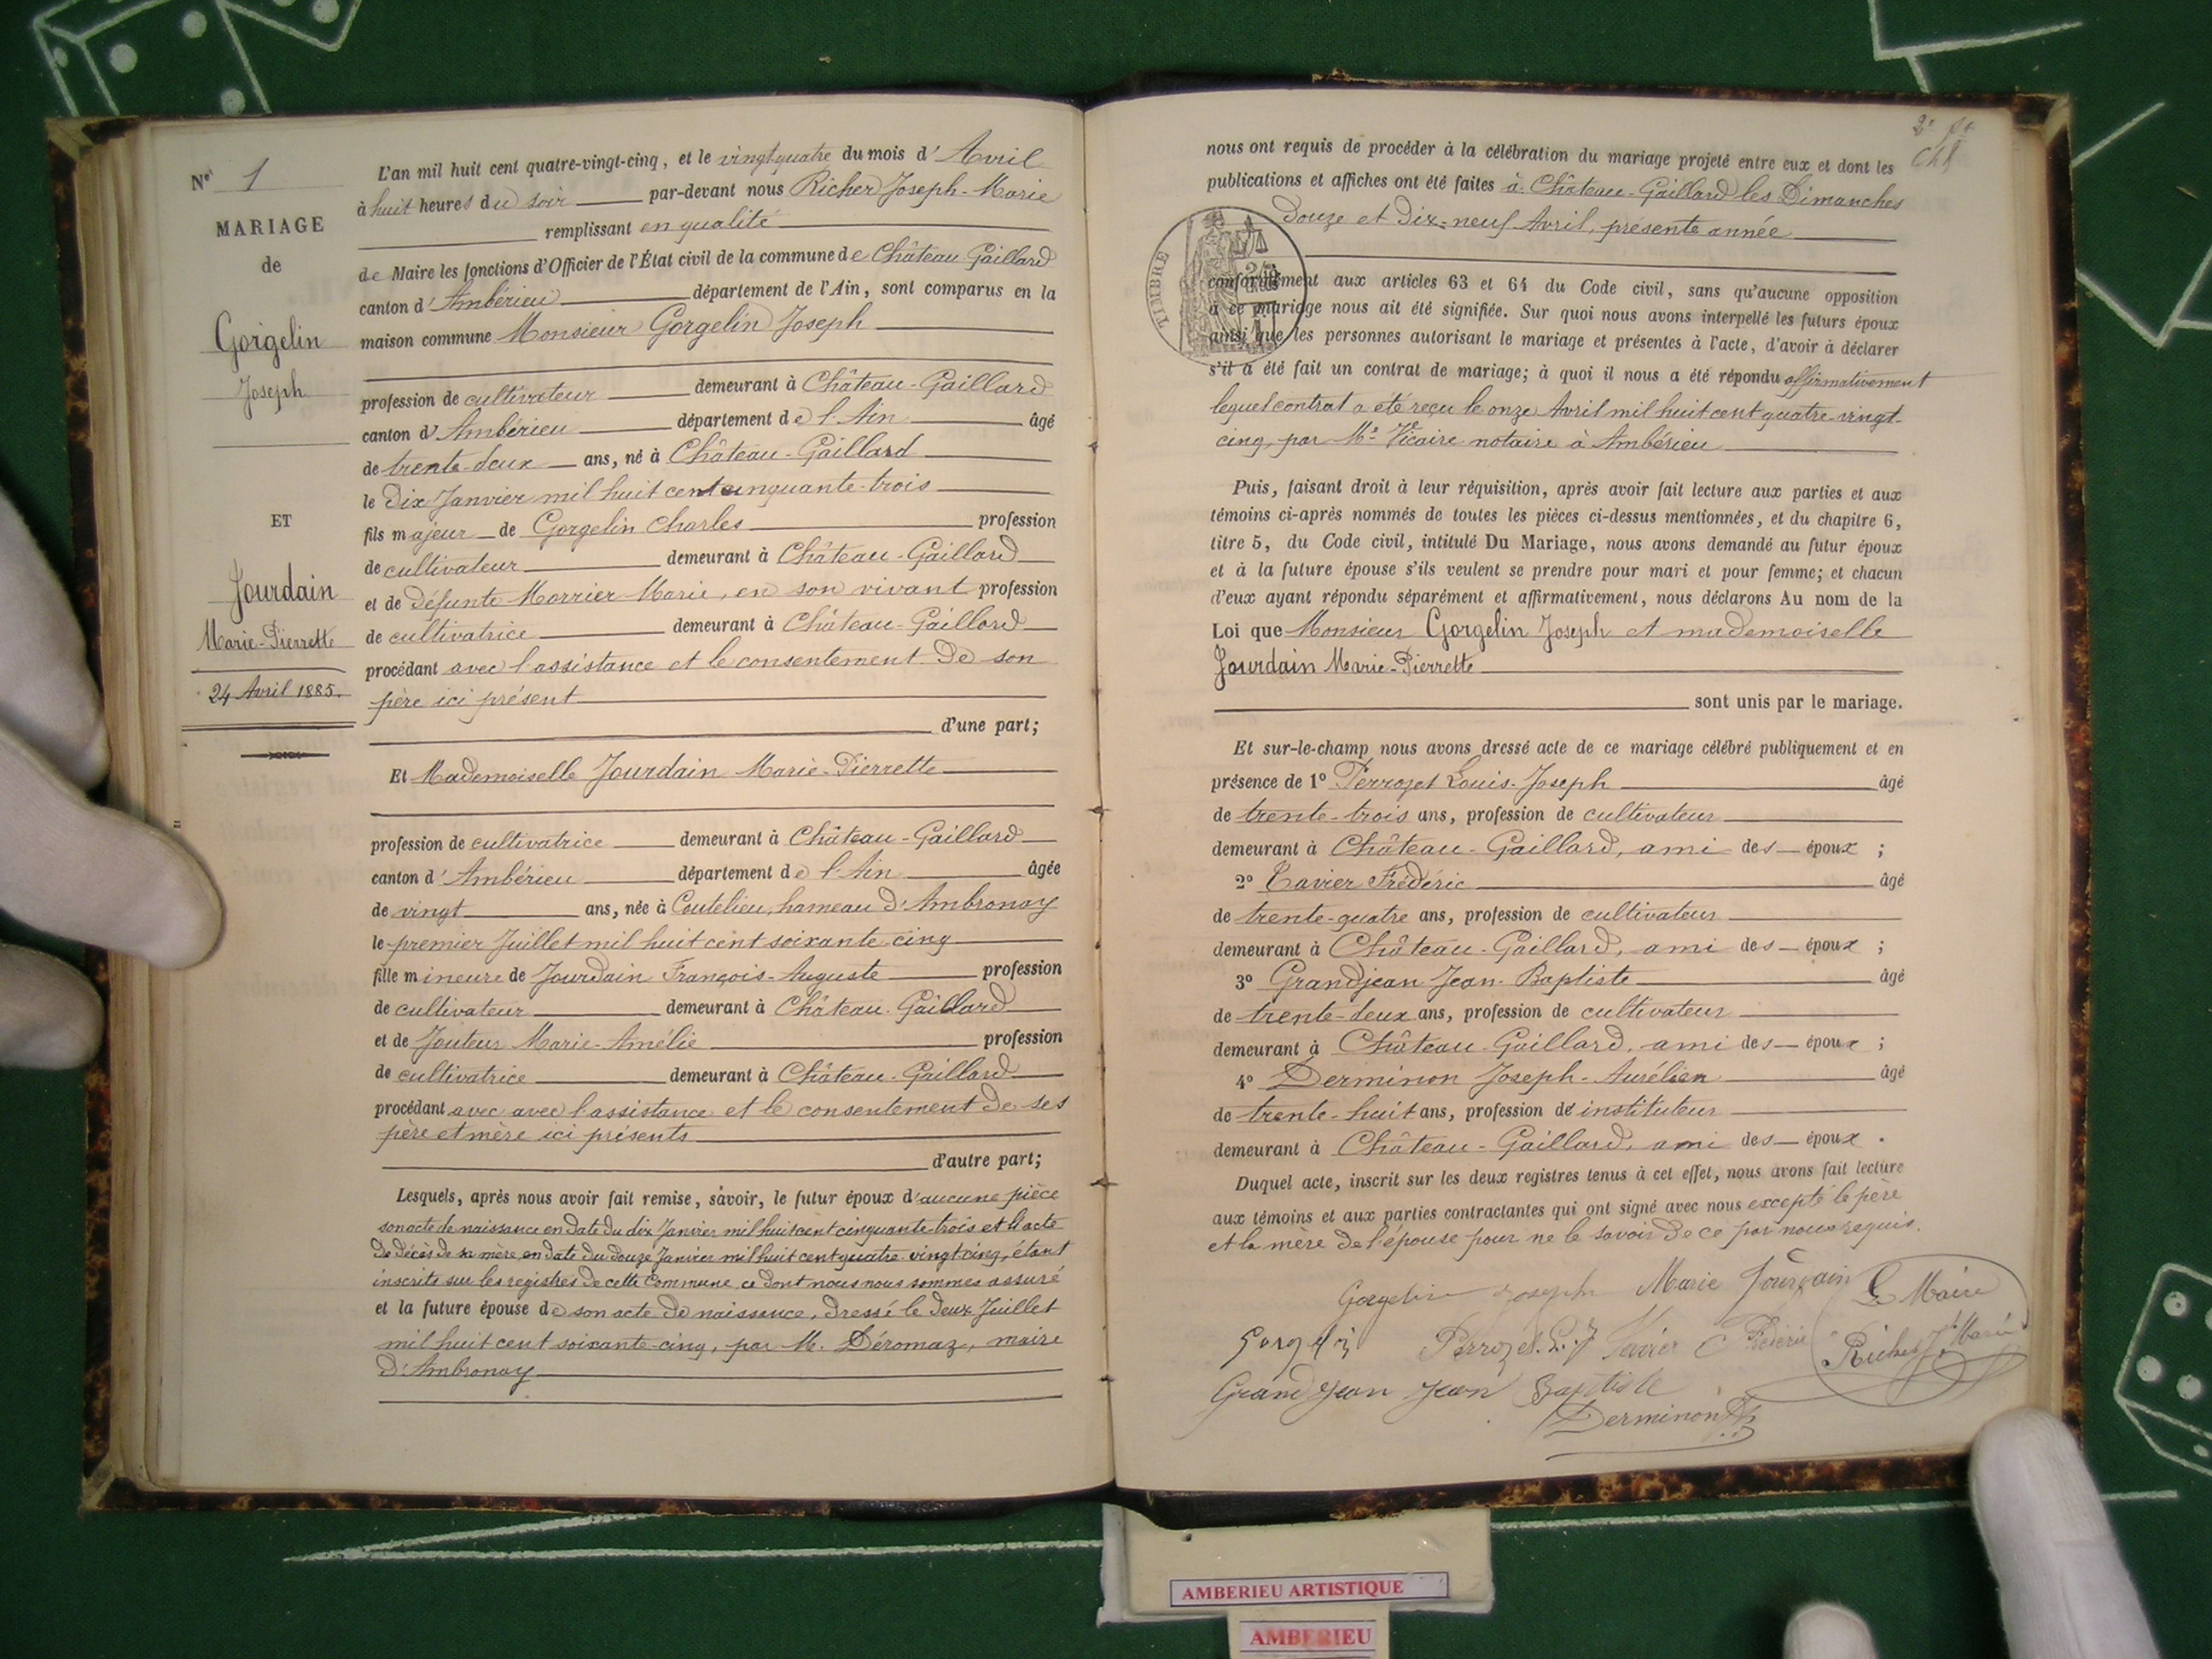 N° 1
MARIAGE
de
Gorgelin
Joseph
ET
Jourdain
Marie-Pierrette
24 Avril 1885.
L'an mil huit cent quatre-vingt-cinq, et le vingt-quatre du mois d'Avril
à huit heures du soir par-devant nous Richer Joseph-Marie
remplissant en qualité
de Maire les fonctions d'Officier de l'État civil de la commune de Château-Gaillard
canton d'Ambérieu département de l'Ain, sont comparus en la
maison commune Monsieur Gorgelin Joseph
profession de cultivateur demeurant à Château-Gaillard
canton d'Ambérieu département de l'Ain âgé
de trente-deux ans, né à Château-Gaillard
le dix Janvier mil huit cent cinquante-trois
fils majeur de Gorgelin Charles profession
de cultivateur demeurant à Château-Gaillard
et de défunte Morrier Marie, en son vivant profession
de cultivatrice demeurant à Château-Gaillard
procédant avec l'assistance et le consentement de son
père ici présent
d'une part;
Et Mademoiselle Jourdain Marie-Pierrette
profession de cultivatrice demeurant à Château-Gaillard
canton d'Ambérieu département de l'Ain âgée
de vingt ans, née à Coutelieu, hameau d'Ambronay
le premier Juillet mil huit cent soixante-cinq
fille mineure de Jourdain François-Auguste profession
de cultivateur demeurant à Château-Gaillard
et de Jouteur Marie-Amélie profession
de cultivatrice demeurant à Château-Gaillard
procédant avec avec l'assistance et le consentement de ses
père et mère ici présents
d'autre part;
Lesquels, après nous avoir fait remise, savoir, le futur époux d'aucune pièce
son acte de naissance en date du dix Janvier mil huit cent cinquante-trois et l'acte
de décès de sa mère en date du douze Janvier mil huit cent quatre-vingt-cinq, étant
inscrits sur les registres de cette Commune, ce dont nous nous sommes assuré
et la future épouse de son acte de naissance, dressé le deux Juillet
mil huit cent soixante-cinq, par M. Déromaz, maire
d'Ambronay
nous ont requis de procéder à la célébration du mariage projeté entre eux et dont les
publications et affiches ont été faites à Château-Gaillard les Dimanches
douze et dix-neuf Avril, présente année
TIMBRE
conformément aux articles 63 et 64 du Code civil, sans qu'aucune opposition
à ce mariage nous ait été signifiée. Sur quoi nous avons interpellé les futurs époux
ainsi que les personnes autorisant le mariage et présentes à l'acte, d'avoir à déclarer
s'il a été fait un contrat de mariage; à quoi il nous a été répondu affirmativement
lequel contrat a été reçu le onze Avril mil huit cent quatre-vingt-
cinq, par Me Vicaire notaire à Ambérieu
Puis, faisant droit à leur réquisition, après avoir fait lecture aux parties et aux
témoins ci-après nommés de toutes les pièces ci-dessus mentionnées, et du chapitre 6,
titre 5, du Code civil, intitulé Du Mariage, nous avons demandé au futur époux
et à la future épouse s'ils veulent se prendre pour mari et pour femme; et chacun
d'eux ayant répondu séparément et affirmativement, nous déclarons Au nom de la
Loi que Monsieur Gorgelin Joseph et mademoiselle
Jourdain Marie-Pierrette
sont unis par le mariage.
Et sur-le-champ nous avons dressé acte de ce mariage célébré publiquement et en
présence de 1° Perrozet Louis-Joseph âgé
de trente-trois ans, profession de cultivateur
demeurant à Château-Gaillard, ami des époux ;
2° Tavier Frédéric âgé
de trente-quatre ans, profession de cultivateur
demeurant à Château-Gaillard, ami des époux ;
3° Grandjean Jean-Baptiste âgé
de trente-deux ans, profession de cultivateur
demeurant à Château-Gaillard, ami des époux ;
4° Derminon Joseph-Aurélien âgé
de trente-huit ans, profession de instituteur
demeurant à Château-Gaillard, ami des époux .
Duquel acte, inscrit sur les deux registres tenus à cet effet, nous avons fait lecture
aux témoins et aux parties contractantes qui ont signé avec nous excepté le père
et la mère de l'épouse pour ne le savoir de ce par nous requis.
Gorgelin Joseph Marie Jourdain Le Maire
Gorgelin Perrozet L. J Tavier Frédéric Richer Jh Marie
Grandjean Jean Baptiste
Derminon
AMBERIEU ARTISTIQUE
AMBERIEU